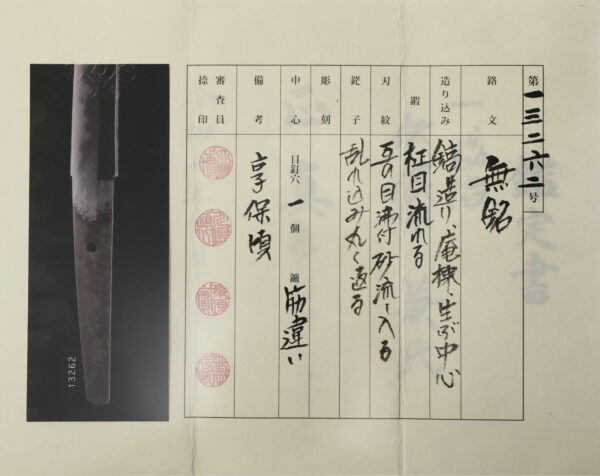 第一三二六二号
銘文 無銘
造り込み 鎬造り、庵棟、生ぶ中心
鍛 柾目流れる
刃紋 互の目沸付砂流し入る
鋩子 乱れ込み丸く返る
彫刻
中心 目釘穴 一個 鑢 筋違い
備考 享保頃
審査員捺印
13262